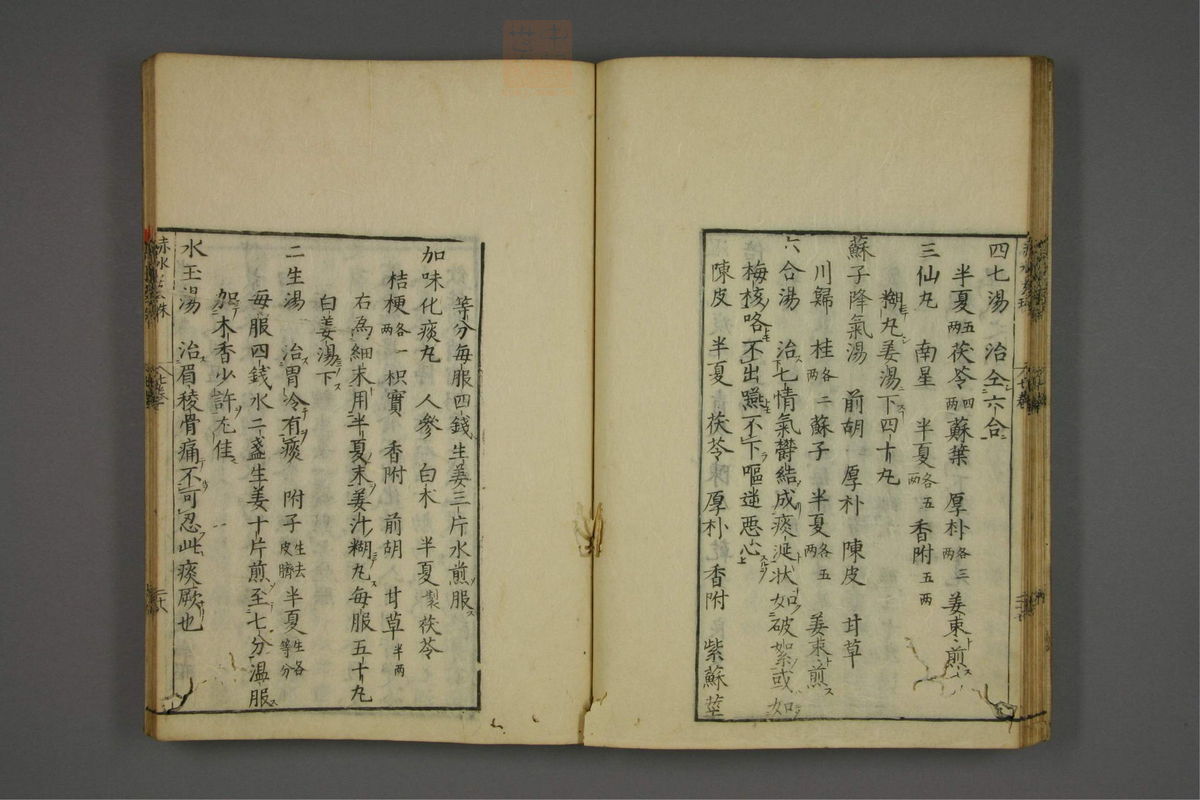 四七湯 治仝六合
半夏五兩 茯苓四兩 蘇葉 厚朴各三兩 姜棗煎
三仙丸 南星 半夏各五兩 香附五兩
糊丸姜湯下四十丸
蘇子降氣湯 前胡 厚朴 陳皮 甘草
川歸 桂各二兩 蘇子 半夏各五兩 姜棗煎
六合湯 治七情氣欝結成痰涎狀如破絮或如
梅核咯不出嚥不下嘔逆惡心
陳皮 半夏 茯苓 厚朴 香附 紫蘇莖
等分每服四錢生姜三片水煎服
加味化痰丸 人參 白朮 半夏製 茯苓
桔梗各一兩 枳實 香附 前胡 甘草半兩
右為細末用半夏末姜汁糊丸每服五十丸
白姜湯下
二生湯 治胃冷有痰 附子生去皮臍 半夏生各等分
每服四錢水二盞生姜十片煎至七分温服
加木香少許尤佳
水玉湯 治眉稜骨痛不可忍此痰厥也